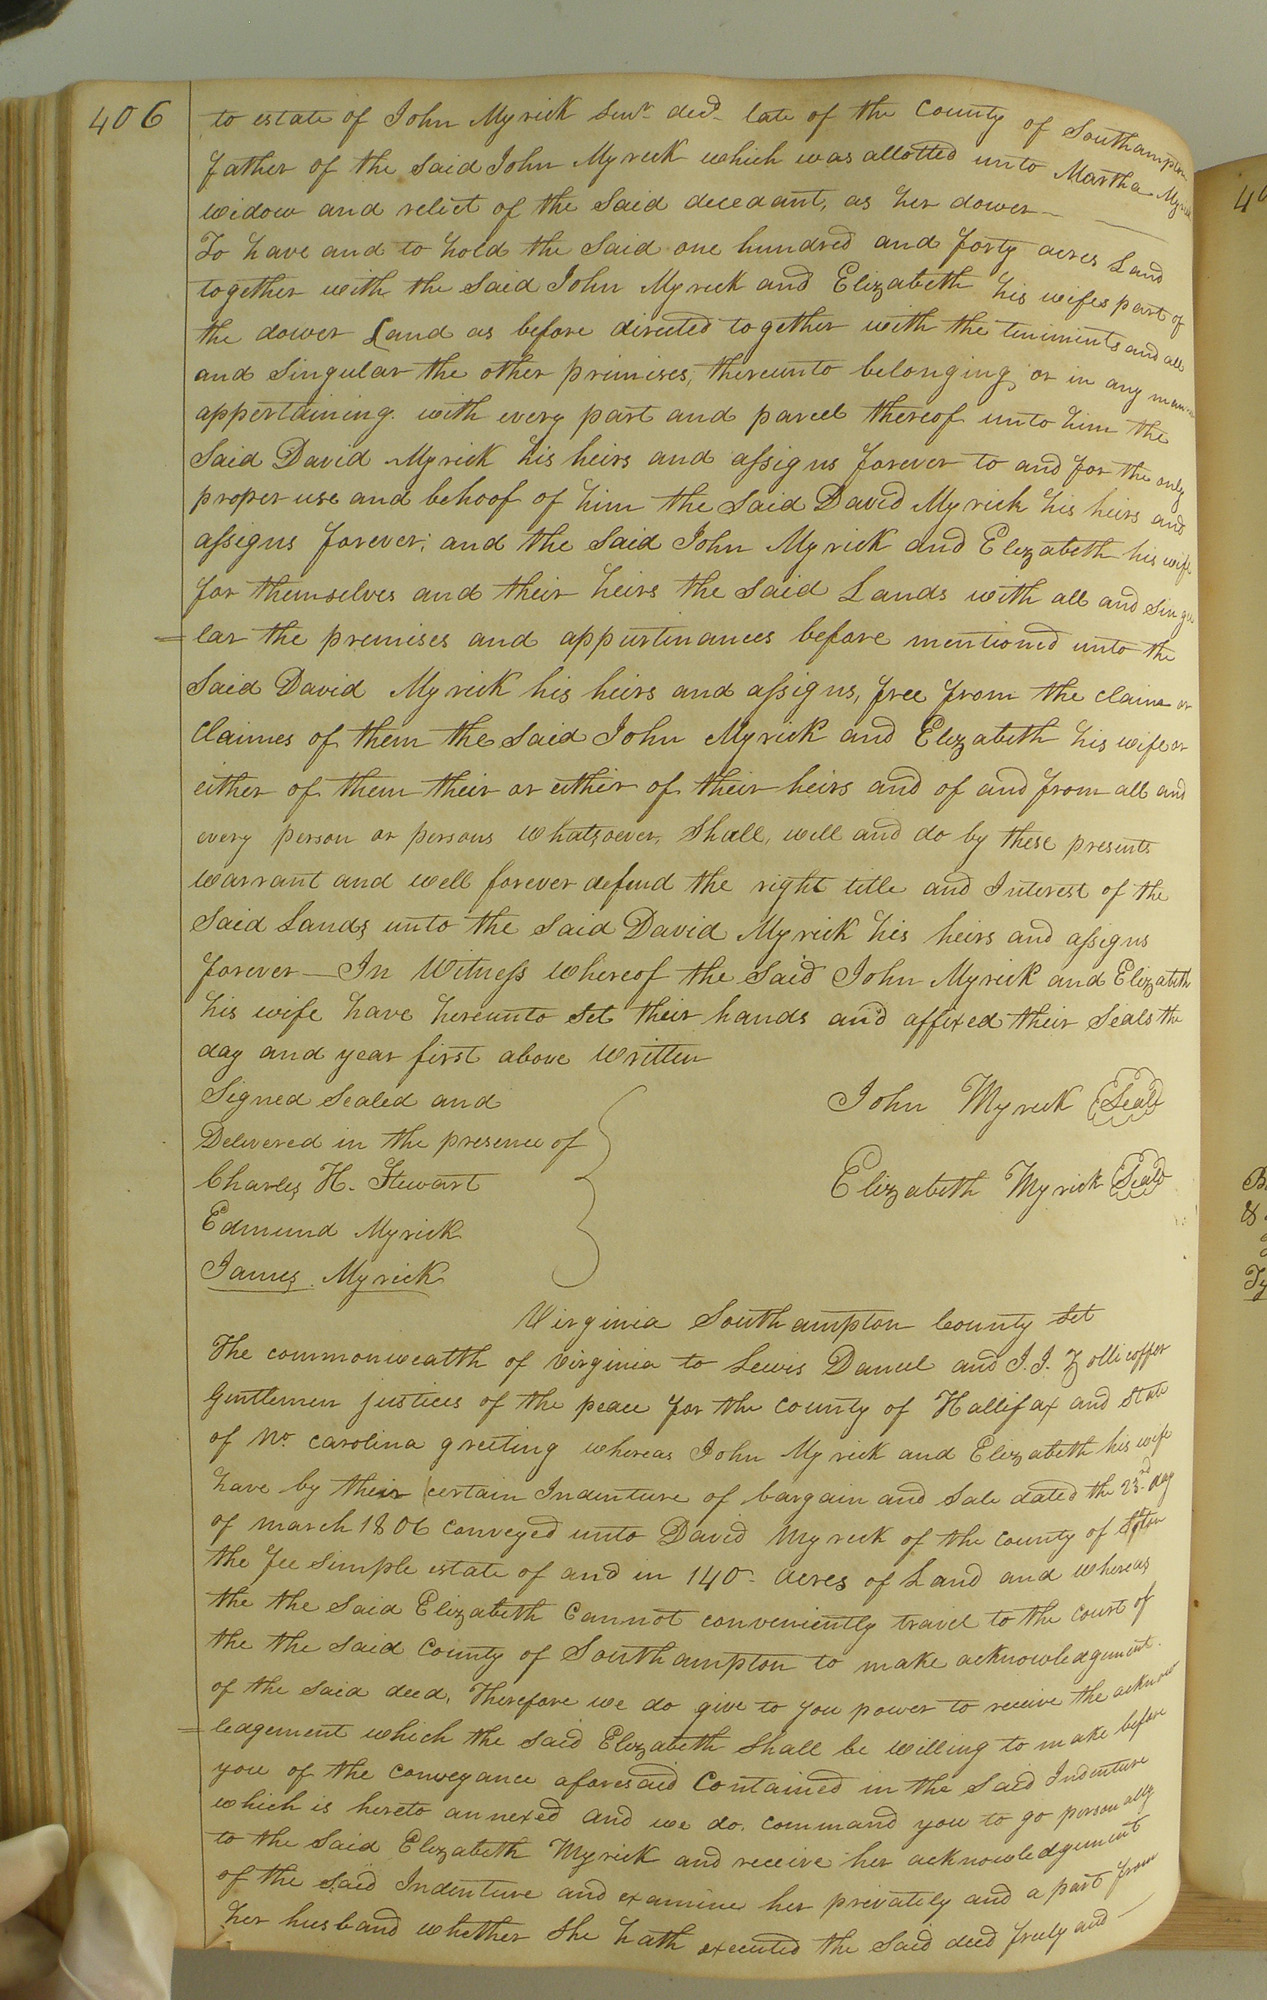 406
to estate of John Myrick Senr. decd. late of the County of Southampton
father of the said John Myrick which was allotted unto Martha Myrick
widow and relict of the said decedant, as her dower
To have and to hold the said one hundred and forty acres Land
together with the said John Myrick and Elizabeth his wifes part of
the dower Land as before directed together with the teniments and all
and singular the other primises, thereunto belonging or in any manner
appertaining. with every part and parcel thereof unto him the
said David Myrick his heirs and assigns forever to and for the only
proper use and behoof of him the said David Myrick his heirs and
assigns forever; and the said John Myrick and Elizabeth his wife
for themselves and their heirs the said Lands with all and singu
= lar the premises and appurtinances before mentioned unto the
said David Myrick his heirs and assigns, free from the claim or
Claimes of them the said John Myrick and Elizabeth his wife or
either of them their or either of their heirs and of and from all and
every person or persons whatsoever, shall, will and do by these presents
warrant and well forever defend the right title and Interest of the
said Lands unto the said David Myrick his heirs and assigns
forever — In Witness whereof the said John Myrick and Elizabeth
his wife have hereunto set their hands and affixed their seals the
day and year first above written
Signed sealed and
Delivered in the presence of
Charles H. Stewart
Edmund Myrick
James Myrick
John Myrick Seal
Elizabeth Myrick Seal
Virginia Southampton County Set
The commonwealth of Virginia to Lewis Daniel and J. J. Zollicoffer
Gentlemen justices of the peace for the county of Hallifax and State
of No. carolina greeting whereas John Myrick and Elizabeth his wife
have by their certain Indenture of bargain and sale dated the 23rd day
of march 1806 conveyed unto David Myrick of the county of Stton
the fee simple estate of and in 140 acres of Land and whereas
the the said Elizabeth Cannot conveniently travel to the court of
the the said County of Southampton to make acknowledgement
of the said deed, Therefore we do give to you power to receive the acknow
= ledgement which the said Elizabeth shall be willing to make before
you of the conveyance aforesaid Contained in the said Indenture
which is hereto annexed and we do. command you to go personally
to the said Elizabeth Myrick and receive her acknowledgement
of the said Indenture and examine her privately and a part from
her husband whether she hath executed the said deed freely and